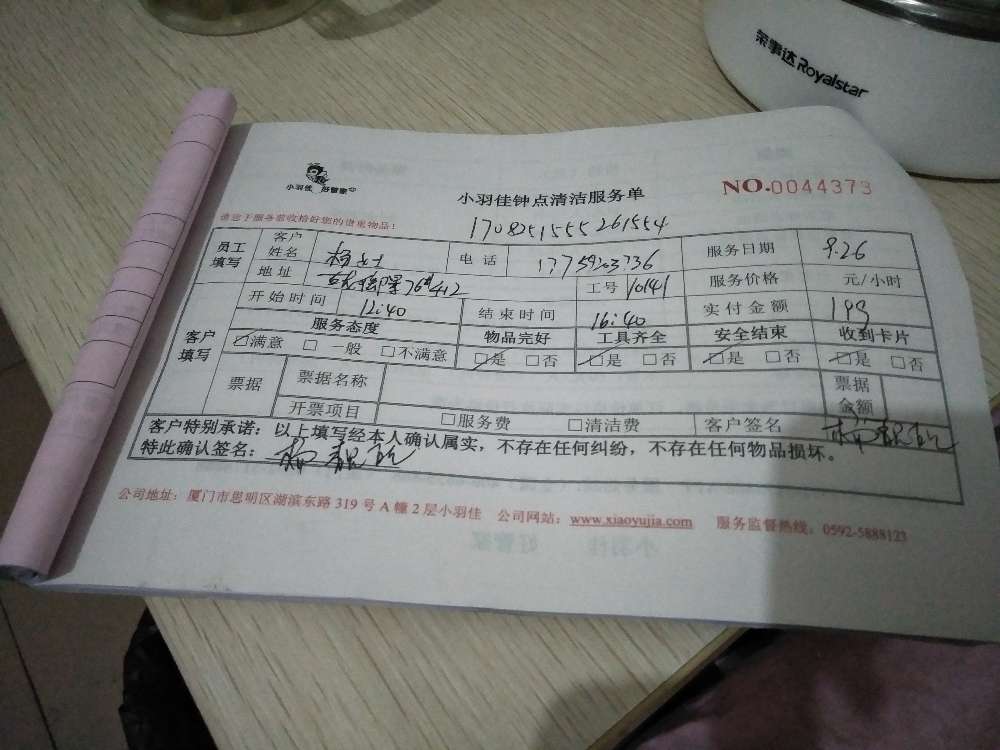 荣事达 Royalstar
小羽佳 好管家
小羽佳钟点清洁服务单
NO.0044373
请您于服务前收拾好您的贵重物品!
1708251555261554
员工填写 客户姓名 杨女士 电话 17759203736 服务日期 9.26
地址 76#412 工号 10141 服务价格 元/小时
客户填写 开始时间 12:40 结束时间 16:40 实付金额 149
服务态度 物品完好 工具齐全 安全结束 收到卡片
☑满意 □一般 □不满意 ☑是 □否 ☑是 □否 ☑是 □否 ☑是 □否
票据 票据名称 票据金额
开票项目 □服务费 □清洁费 客户签名
客户特别承诺:以上填写经本人确认属实,不存在任何纠纷,不存在任何物品损坏。
特此确认签名:
公司地址:厦门市思明区湖滨东路 319 号 A 幢 2 层小羽佳 公司网站:www.xiaoyujia.com 服务监督热线:0592-5888123